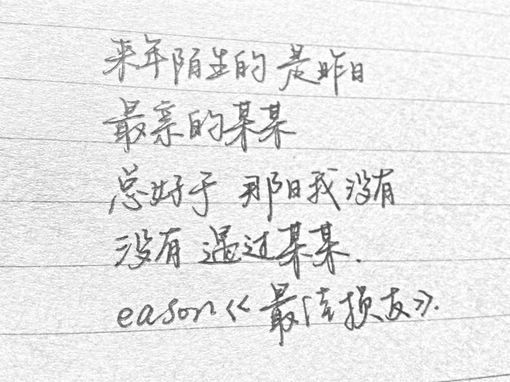 来年陌生的 是昨日
最亲的某某
总好于 那日我没有
没有 遇过某某.
eason《最佳损友》.